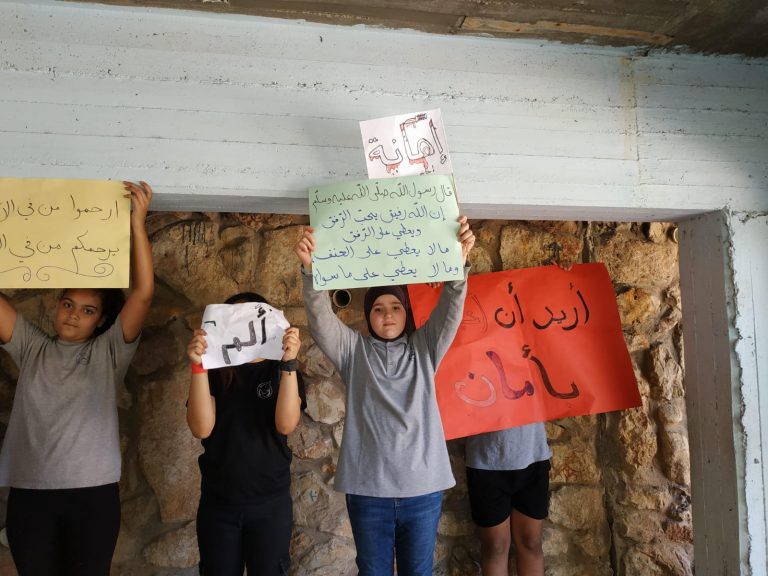 إهانة
قال رسول الله صلى الله عليه وسلم
إن الله رفيق يحب الرفق
ويعطي على الرفق
مالا يعطي على العنف
وما لا يعطي على ما سواه
ارحموا من في الأ
يرحمكم من في ال
ألم
أريد أن
بأمان